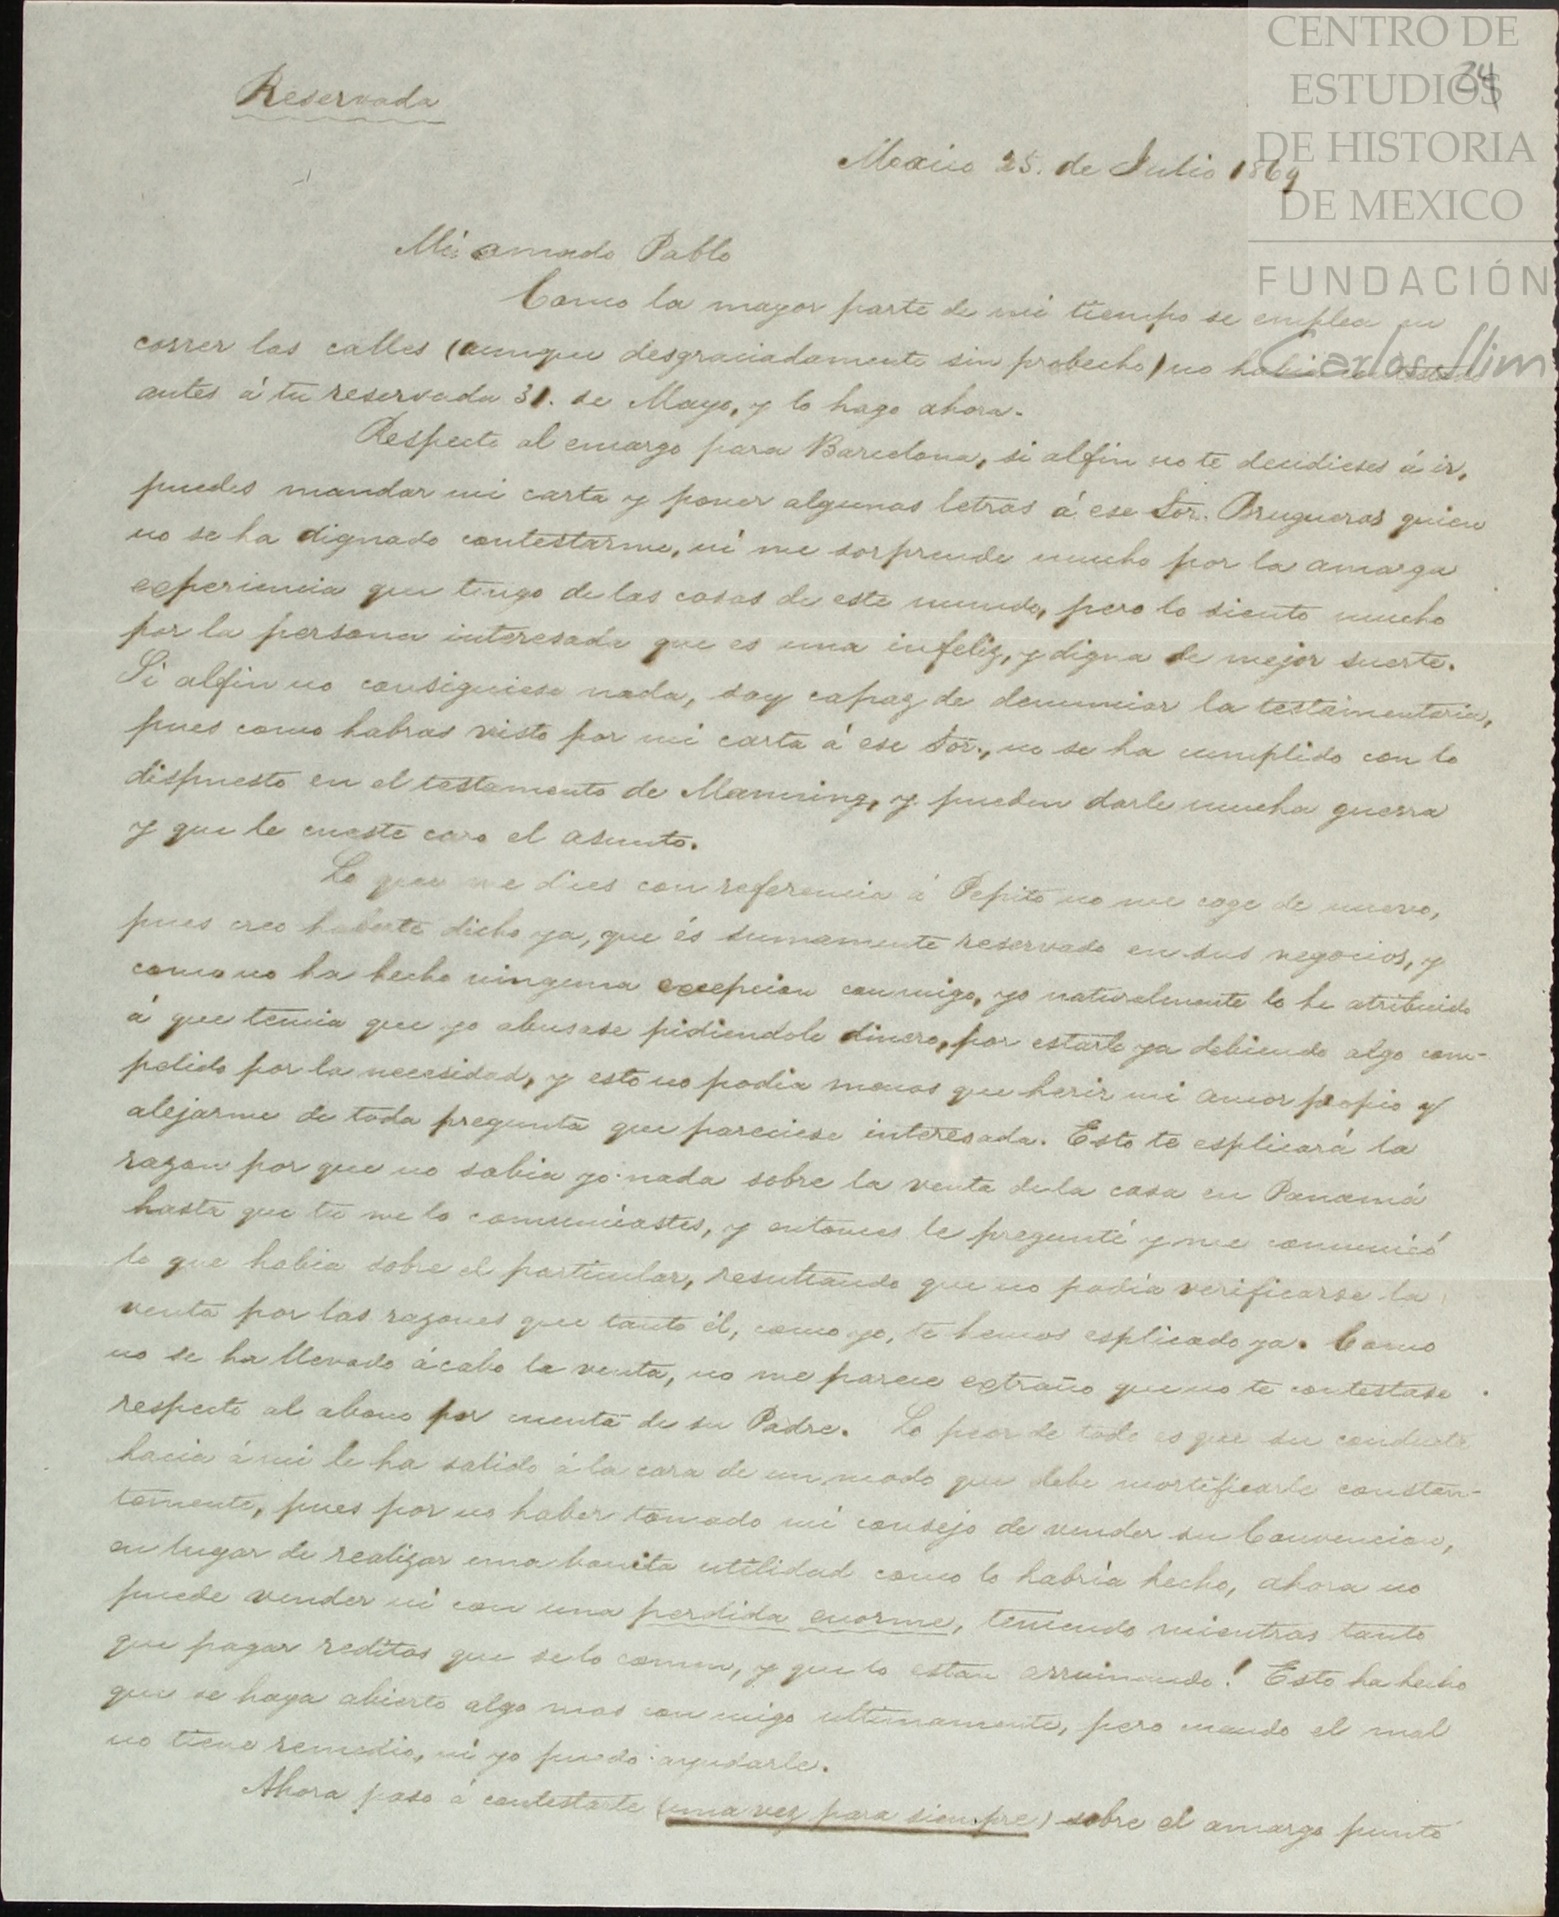 CENTRO DE
ESTUDIOS
DE HISTORIA
DE MEXICO
FUNDACIÓN
Carlos Slim
24
Reservada
Mexico 25. de Julio 1869
Mi amado Pablo
Como la mayor parte de mi tiempo se emplea en
correr las calles (aunque desgraciadamente sin probecho) no habia contestado
antes á tu reservada 31. de Mayo, y lo hago ahora.
Respecto al encargo para Barcelona, si alfin no te decidieses á ir,
puedes mandar mi carta y poner algunas letras á ese Sor. Brugueras quien
no se ha dignado contestarme, ni me sorprende mucho por la amarga
experiencia que tengo de las cosas de este mundo, pero lo siento mucho
por la persona interesada que es una infeliz, y digna de mejor suerte.
Si alfin no consiguiese nada, soy capaz de denunciar la testamentaria,
pues como habras visto por mi carta á ese Sor., no se ha cumplido con lo
dispuesto en el testamento de Manning, y pueden darle mucha guerra
y que le cueste caro el asunto.
Lo que me dices con referencia á Pepito no me coge de nuevo,
pues creo haberte dicho ya, que és sumamente reservado en sus negocios, y
como no ha hecho ninguna excepcion conmigo, yo naturalmente lo he atribuido
á que temia que yo abusase pidiendole dinero, por estarle ya debiendo algo com-
pelido por la necesidad, y esto no podia menos que herir mi amor propio y
alejarme de toda pregunta que pareciese interesada. Esto te esplicará la
razon por que no sabia yo nada sobre la venta de la casa en Panamá
hasta que tu me lo comunicastes, y entonces le pregunté y me comunicó
lo que habia sobre el particular, resultando que no podia verificarse la
venta por las razones que tanto él, como yo, te hemos esplicado ya. Como
no se ha llevado ácabo la venta, no me parece extraño que no te contestase
respecto al abono por cuenta de su Padre. Lo peor de todo es que su conducta
hacia á mi le ha salido á la cara de un modo que debe mortificarle constan-
temente, pues por no haber tomado mi consejo de vender su Convencion,
en lugar de realizar una bonita utilidad como lo habria hecho, ahora no
puede vender ni con una perdida enorme, teniendo mientras tanto
que pagar reditos que selo comen, y que lo estan arruinando! Esto ha hecho
que se haya abierto algo mas con migo ultimamente, pero cuando el mal
no tiene remedio, ni yo puedo ayudarle.
Ahora paso á contestarte (una vez para siempre) sobre el amargo punto